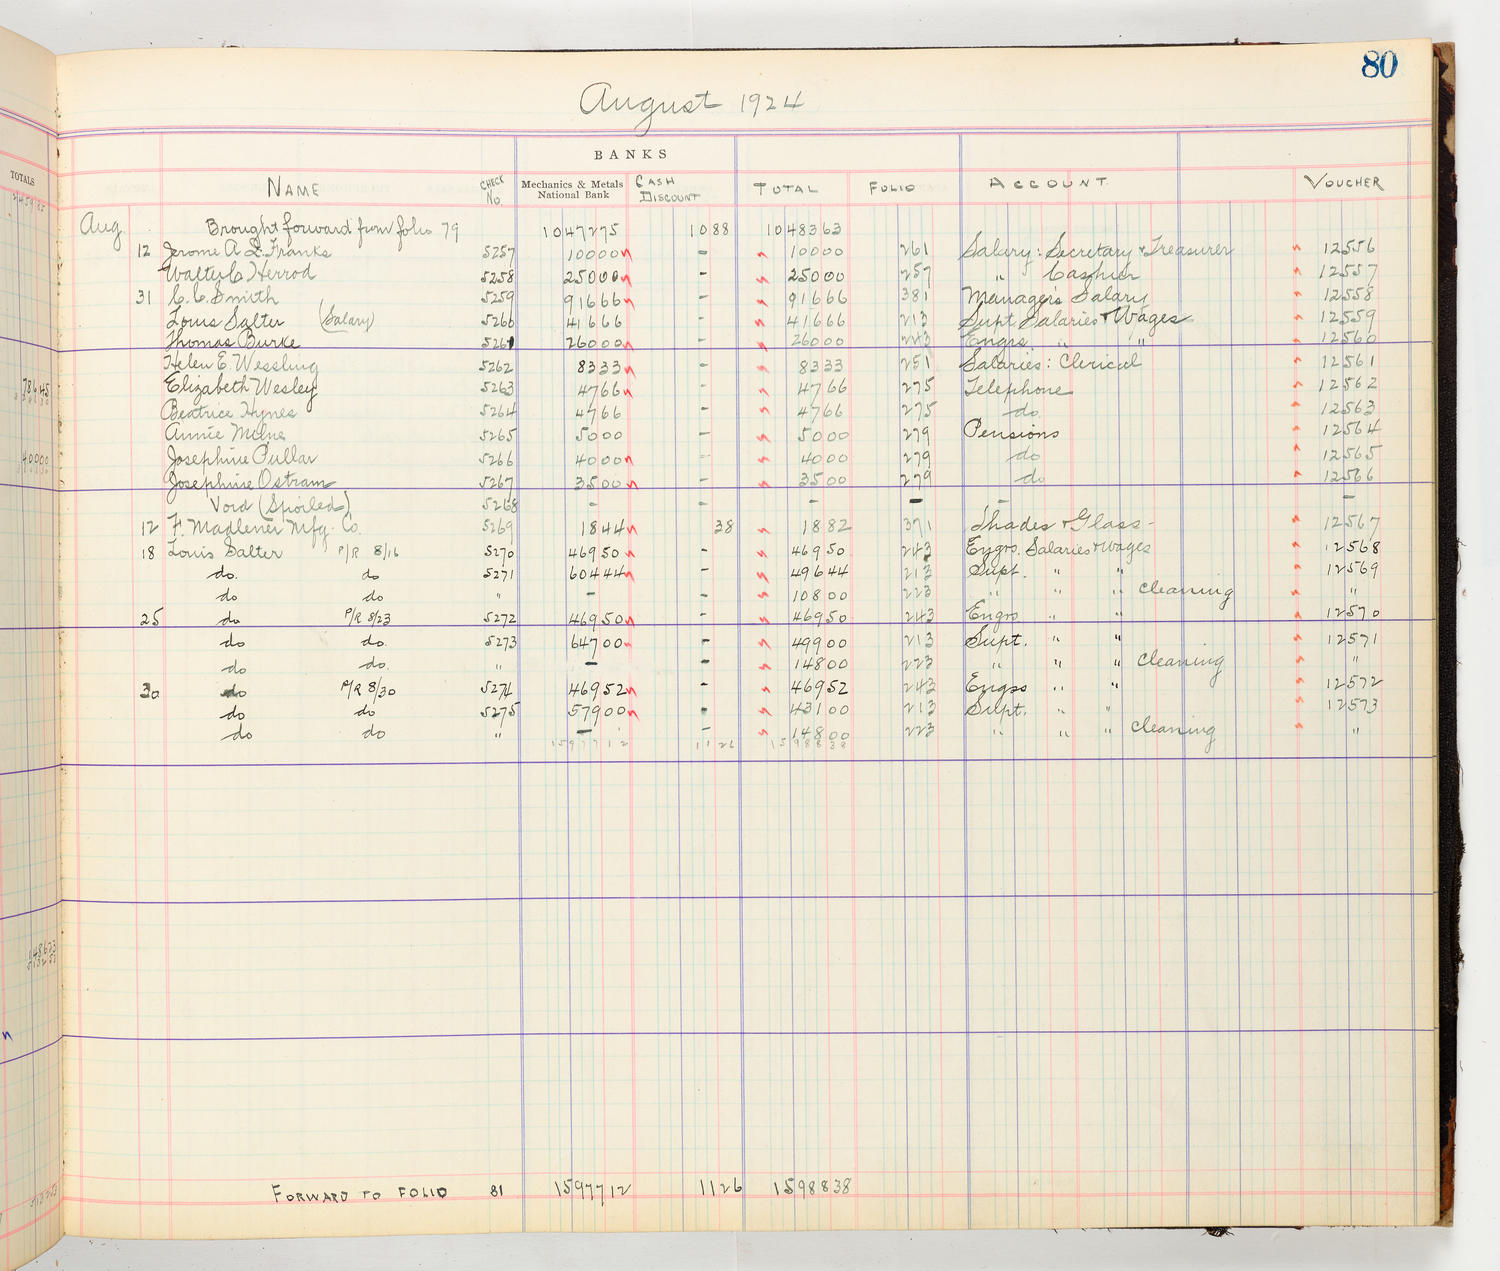 80
August 1924
BANKS
TOTALS
NAME CHECK No. Mechanics & Metals National Bank CASH DISCOUNT TOTAL FOLIO ACCOUNT. VOUCHER
Aug Brought forward from folio 79 1047275 1088 1048363
12 Jerome A. L. Franks 5257 10000 - 10000 261 Salary: Secretary & Treasurer 12556
Walter C Herrod 5258 25000 - 25000 257 " Cashier 12557
31 C. C. Smith 5259 91666 - 91666 381 Manager's Salary 12558
Louis Salter (Salary) 5260 41666 - 41666 213 Supt. Salaries & Wages 12559
Thomas Burke 5261 26000 - 26000 243 Engrs. " " 12560
Helen E. Wessling 5262 8333 - 8333 251 Salaries: Clerical 12561
Elizabeth Wesley 5263 4766 - 4766 275 Telephone 12562
Beatrice Hynes 5264 4766 - 4766 275 do. 12563
Annie Milne 5265 5000 - 5000 279 Pensions 12564
Josephine Pullar 5266 4000 - 4000 279 do 12565
Josephine Ostram 5267 3500 - 3500 279 do 12566
Void (Spoiled) 5268 - - - - - -
12 F. Madlener Mfg. Co. 5269 1844 38 1882 371 Shades & Glass - 12567
18 Louis Salter P/R 8/16 5270 46950 - 46950 243 Engrs. Salaries & Wages 12568
do. do 5271 60444 - 49644 213 Supt. " " 12569
do do " - - 10800 223 " " " cleaning "
25 do P/R 8/23 5272 46950 - 46950 243 Engrs " " 12570
do do. 5273 64700 - 49900 213 Supt. " " 12571
do do. " - - 14800 223 " " " cleaning "
30 do P/R 8/30 5274 46952 - 46952 243 Engrs " " 12572
do do 5275 57900 - 43100 213 Supt. " " 12573
do do " - - 14800 223 " " " cleaning "
1597712 1126 1598838
FORWARD TO FOLIO 81 1597712 1126 1598838